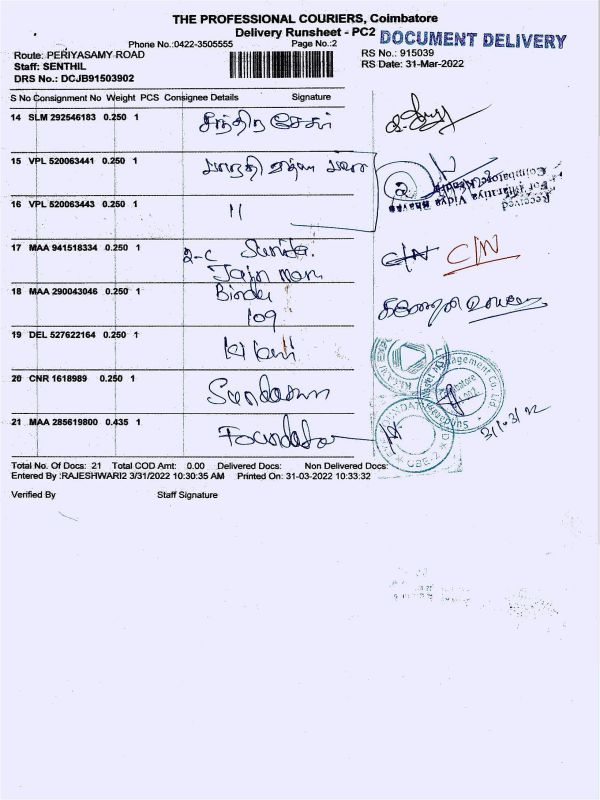 THE PROFESSIONAL COURIERS, Coimbatore
Delivery Runsheet - PC2
DOCUMENT DELIVERY
Phone No.:0422-3505555 Page No.:2
Route: PERIYASAMY ROAD
Staff: SENTHIL
DRS No.: DCJB91503902
RS No.: 915039
RS Date: 31-Mar-2022
S No Consignment No Weight PCS Consignee Details Signature
14 SLM 292546183 0.250 1 சந்திர சேகர்
15 VPL 520063441 0.250 1 பாரதி வித்யா பவன்
16 VPL 520063443 0.250 1 11
Received
For Bharatiya Vidya Bhavan
Coimbatore Kendra
17 MAA 941518334 0.250 1 2-C
Jain
C/N C/N
18 MAA 290043046 0.250 1 Binder
109
19 DEL 527622164 0.250 1
20 CNR 1618989 0.250 1 Sundaram
21 MAA 285619800 0.435 1
31/03/22
Total No. Of Docs: 21 Total COD Amt: 0.00 Delivered Docs: Non Delivered Docs:
Entered By :RAJESHWARI2 3/31/2022 10:30:35 AM Printed On: 31-03-2022 10:33:32
Verified By Staff Signature